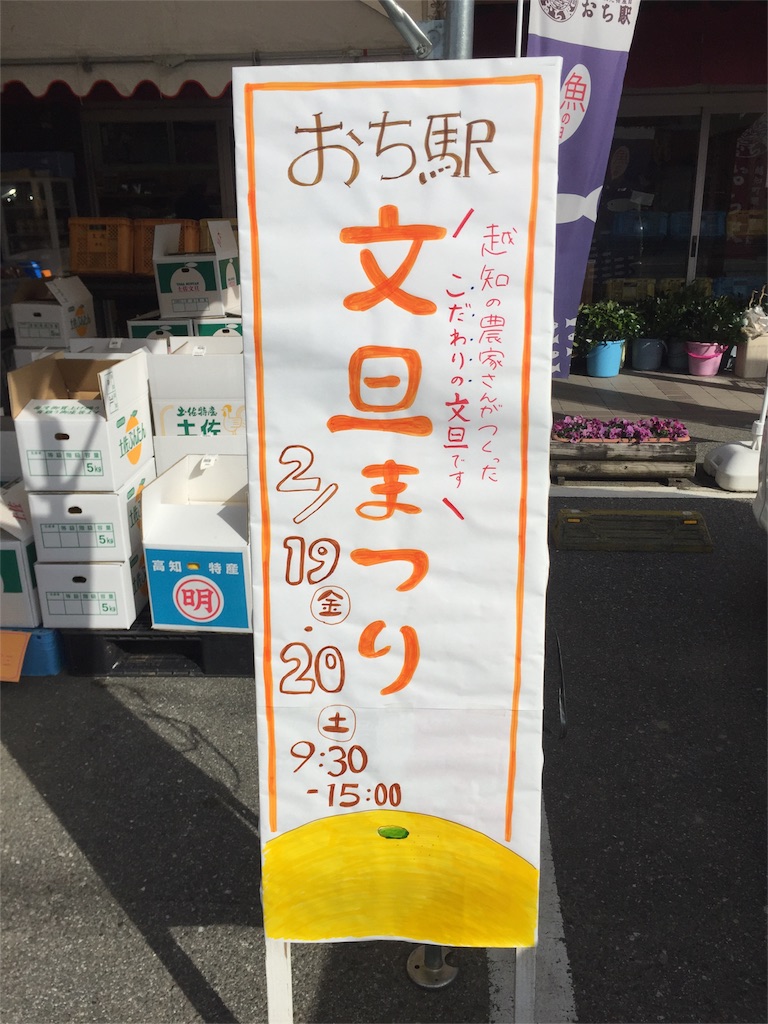 おち駅
文旦まつり
越知の農家さんがつくった
こだわりの文旦です
2/
19
金
・
20
土
9:30
-15:00
おち駅
魚
の
土佐ぶんたん
5kg
5kg
5kg
土佐特産
土佐
高知 特産
明